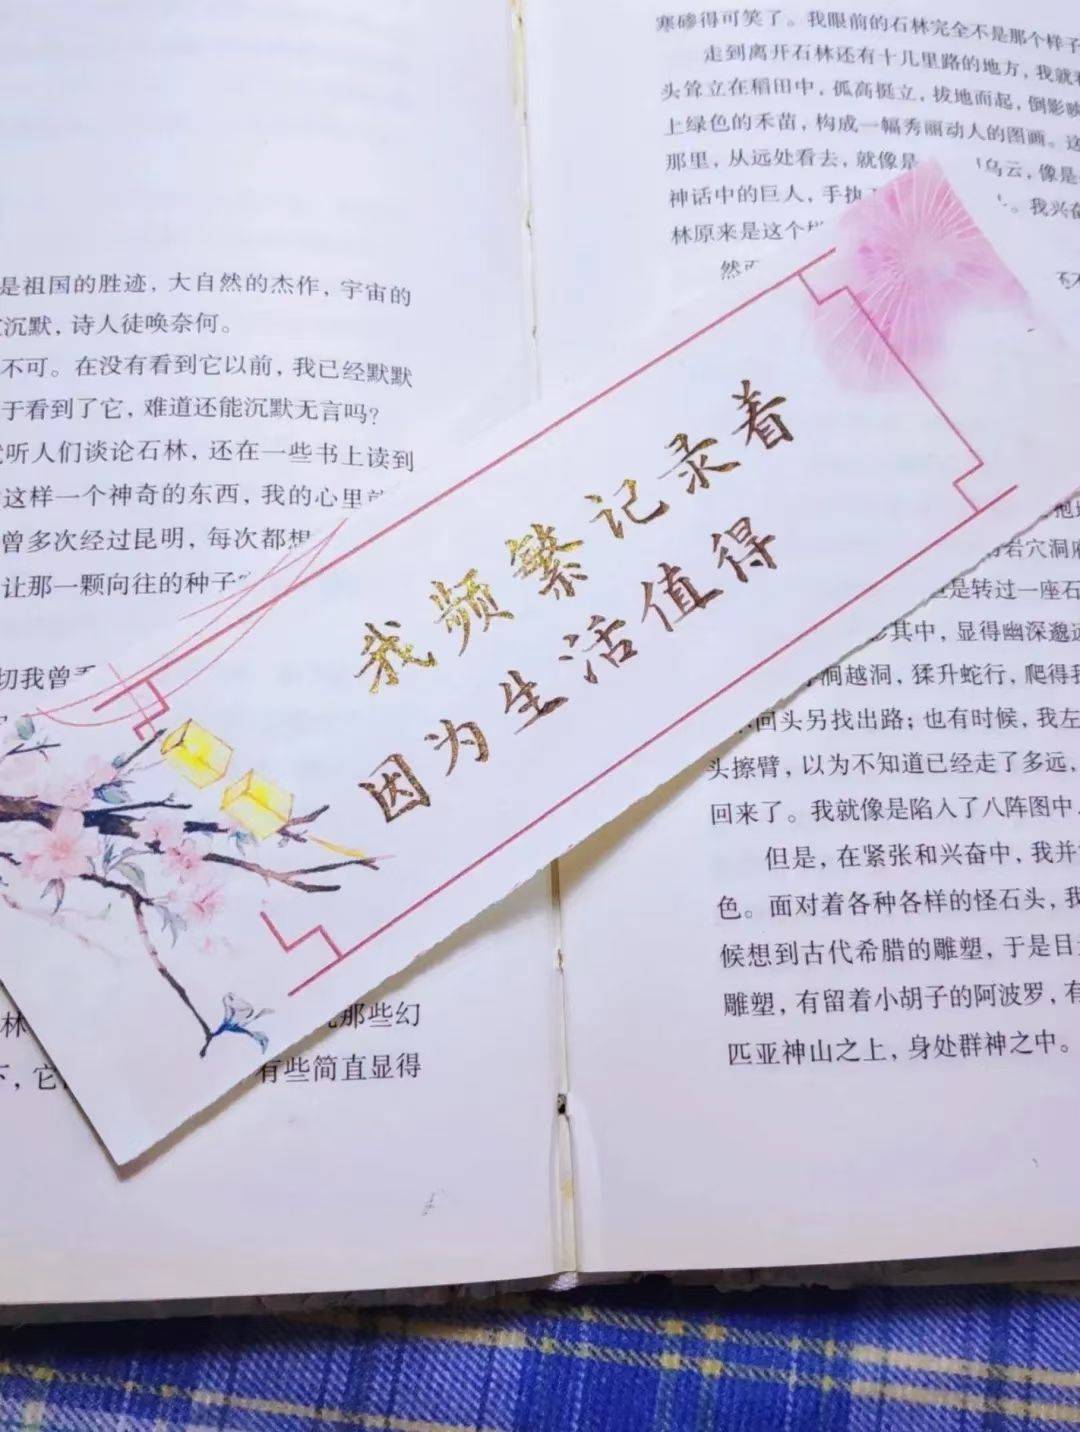 是祖国的胜迹，大自然的杰作，宇宙的
沉默，诗人徒唤奈何。
不可。在没有看到它以前，我已经默默
于看到了它，难道还能沉默无言吗？
听人们谈论石林，还在一些书上读到
这样一个神奇的东西，我的心里
曾多次经过昆明，每次都想
让那一颗向往的种子
切我曾
林
那些幻
下，它
有些简直显得
我频繁记录着
因为生活值得
寒碜得可笑了。我眼前的石林完全不是那个样子
走到离开石林还有十几里路的地方，我就
头耸立在稻田中，孤高挺立，拔地而起，倒影
上绿色的禾苗，构成一幅秀丽动人的图画。这
那里，从远处看去，就像是
乌云，像是
神话中的巨人，手执
。我兴奋
林原来是这个
然
岩穴洞
是转过一座石
其中，显得幽深邈
洞越洞，猱升蛇行，爬得我
回头另找出路；也有时候，我左
头擦臂，以为不知道已经走了多远，
回来了。我就像是陷入了八阵图中，
但是，在紧张和兴奋中，我并
色。面对着各种各样的怪石头，我
候想到古代希腊的雕塑，于是目
雕塑，有留着小胡子的阿波罗，有
匹亚神山之上，身处群神之中。